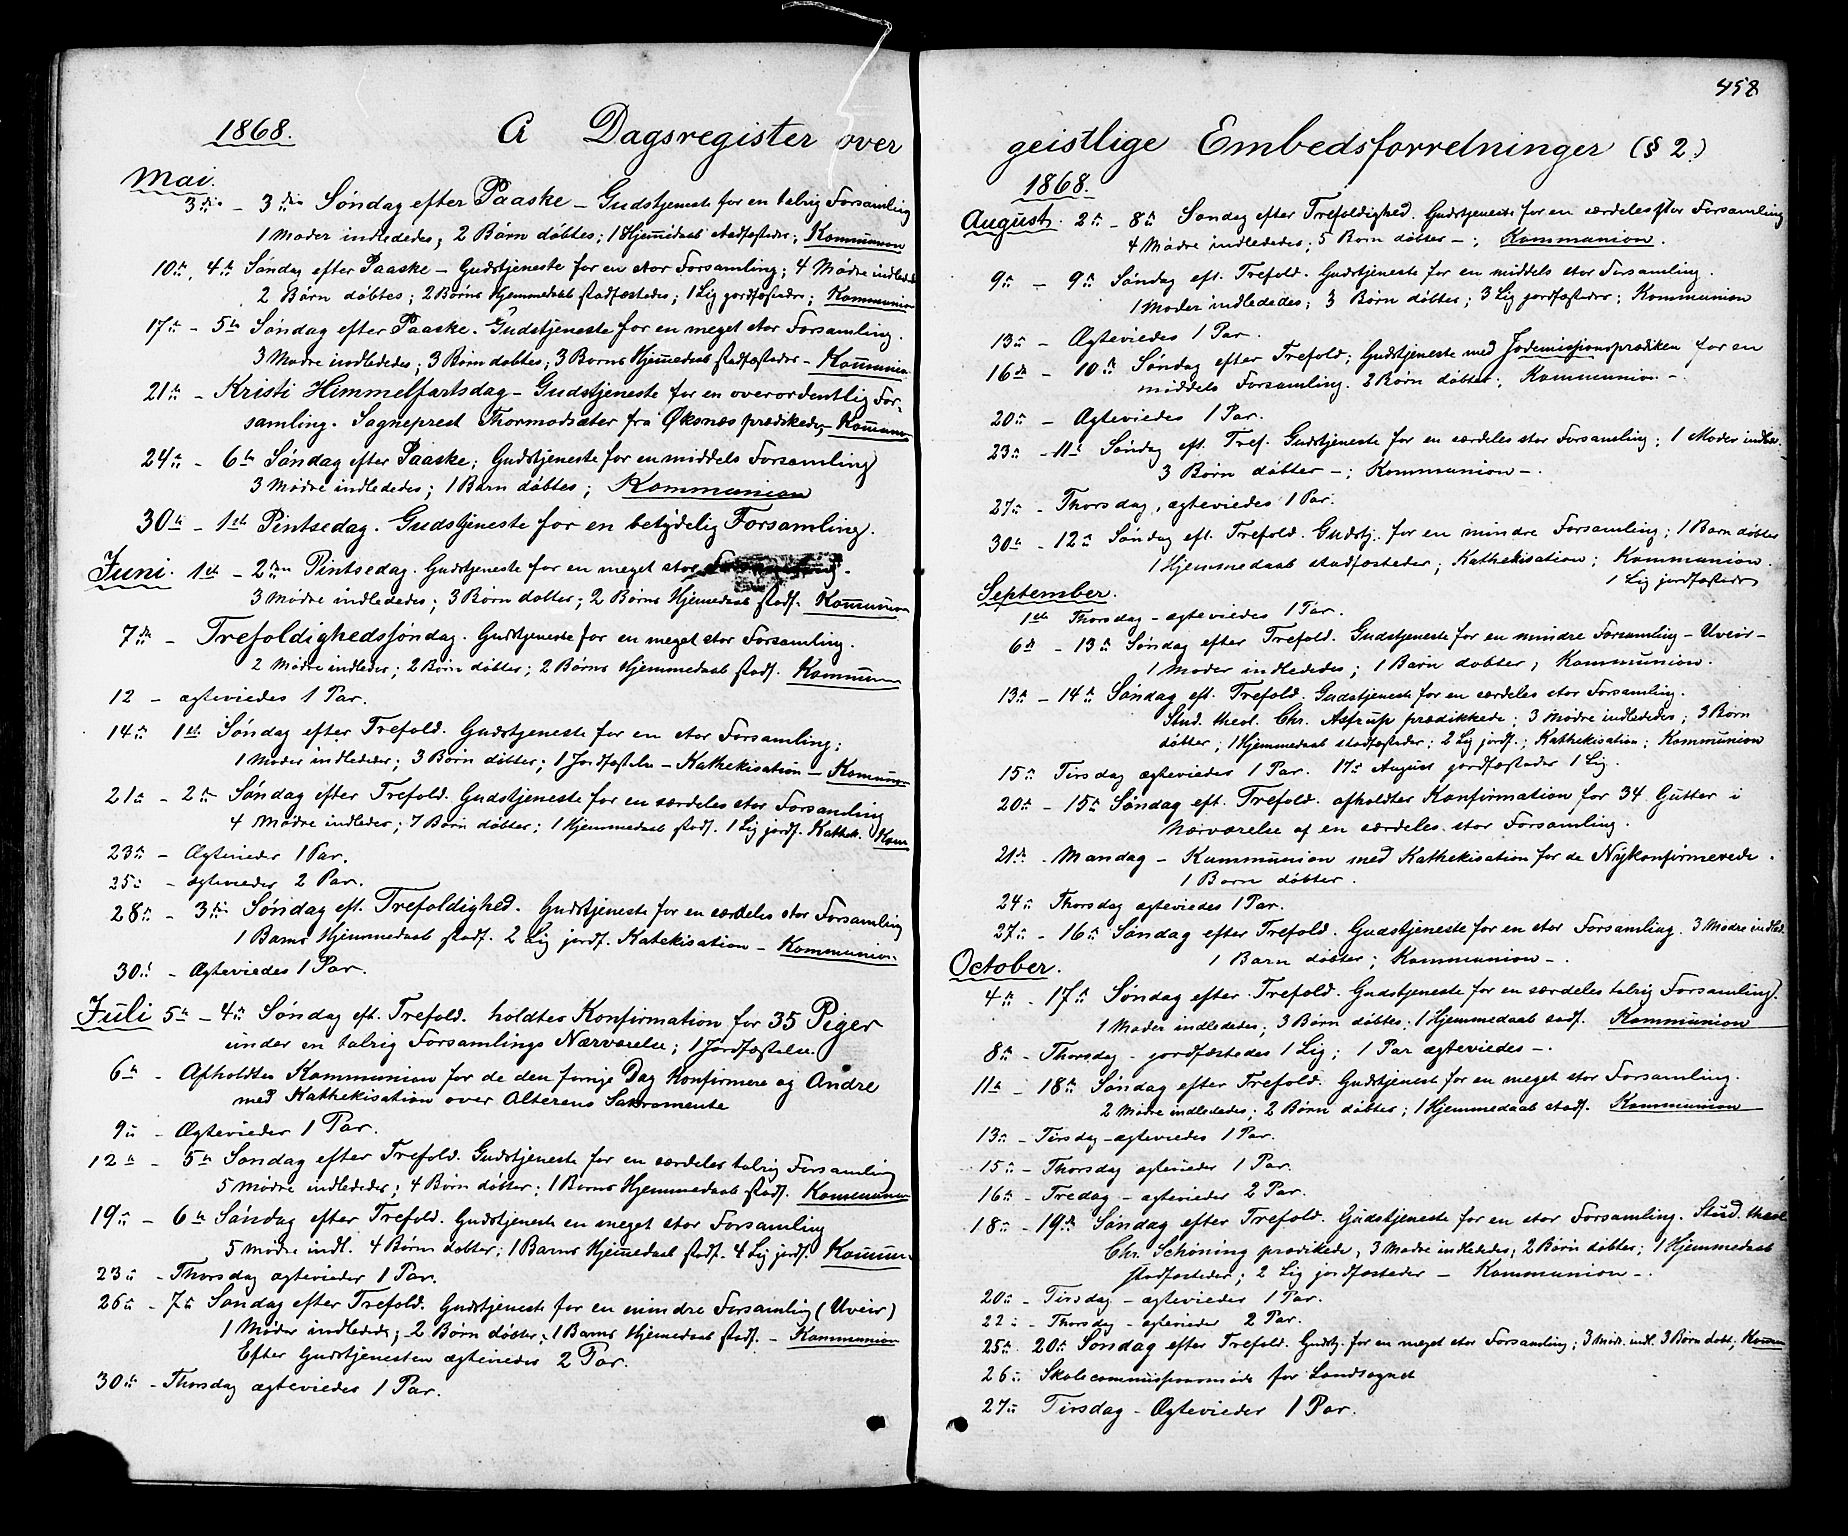 1868. A Dagsregister over
Mai.
3die - 3die Søndag efter Paaske - Gudstjeneste for en talrig Forsamling
1 Moder indlededes; 2 Børn døbtes; 1 Hjemedaab stadfæstedes; Kommunion
10de, 4de Søndag efter Paaske - Gudstjeneste for en stor Forsamling; 4 Mødre indlededes
2 Børn døbtes; 2 Børns Hjemmedaab stadfæstedes; 1 Lig jordfæstedes; Kommunion
17de - 5te Søndag efter Paaske. Gudstjeneste for en meget stor Forsamling.
3 Mødre indlededes; 3 Børn døbtes; 3 Børns Hjemedaab stadfæstedes - Kommunion.
21de - Kristi Himmelfartsdag - Gudstjeneste for en overordentlig For-
samling. Sogneprest Thormodsæter fra Øksnes prædikede, - Kommun
24de - 6te Søndag efter Paaske; Gudstjeneste for en middels Forsamling
3 Mødre indlededes; 1 Barn døbtes; Kommunion
30te - 1ste Pintsedag. Gudstjeneste for en betydelig Forsamling.
Juni. 1ste - 2den Pintsedag. Gudstjeneste for en meget stor
3 Mødre indlededes; 3 Børn døbtes; 2 Børns Hjemedaab stadf. Kommunion
7de - Trefoldighedssøndag. Gudstjeneste for en meget stor Forsamling.
2 Mødre indledes; 2 Børn døbtes; 2 Børns Hjemmedaab stadf. Kommunion
12 - ægteviedes 1 Par.
14de 1ste Søndag efter Trefold. Gudstjeneste for en stor Forsamling;
1 Moder indlededes; 3 Børn døbtes; 1 Jordfæstelse - Kathekisation - Kommun
21de - 2den Søndag efter Trefold. Gudstjeneste for en særdeles stor Forsamling
4 Mødre indledes; 7 Børn døbtes; 1 Hjemmedaab stadf. 1 Lig jordf. Kathek. Kom
23de - Ægtevieder 1 Par.
25de - ægtevieder 2 Par.
28de - 3die Søndag eft. Trefoldighed. Gudstjeneste for en særdeles stor Forsamling
1 Barns Hjemmedaab stadf. 2 Lig jordf. Katekisation - Kommunion.
30te - Ægteviedes 1 Par.
Juli 5te - 4de Søndag eft. Trefold. holdtes Konfirmation for 35 Piger
under en talrig Forsamlings Nærværelse; 1 Jordfæstelse.
6te - Afholdtes Kommunion for de den forrige Dag Konfirmere og Andre
med Kathekisation over Alterens Sakramente
9de - Ægtevieder 1 Par.
12te - 5te Søndag efter Trefold. Gudstjeneste for en særdeles talrig Forsamling
5 Mødre indlededes; 4 Børn døbtes; 1 Barns Hjemmedaab stadf. Kommunion
19de - 6te Søndag efter Trefold. Gudstjeneste en meget stor Forsamling
5 Mødre indl. 4 Børn døbtes; 1 Barns Hjemedaab stadf. 4 Lig jordf. Kommun.
23de - Thorsdag ægtevieder 1 Par.
26de - 7de Søndag efter Trefold. Gudstjeneste for en mindre Forsamling (Uveir)
1 Moder indledede; 2 Børn døbtes; 1 Barns Hjemedaab stadf. - Kommunion
Efter Gudstjenesten ægteviedes 2 Par.
30te - Thorsdag ægteviedes 1 Par.
458
geistlige Embedsforretninger (§ 2.)
1868.
August. 2de - 8de Søndag efter Trefoldighed. Gudstjeneste for en særdeles stor Forsamling
4 Mødre indlededes; 5 Børn døbtes -; Kommunion.
9de - 9de Søndag eft. Trefold. Gudstjeneste for en middels stor Forsamling.
1 Moder indlededes; 3 Børn døbtes; 3 Lig jordfæstedes; Kommunion
13de - Ægteviedes 1 Par.
16de - 10de Søndag efter Trefold; Gudstjeneste med Jødemissionsprædiken for en
middels Forsamling. 2 Børn døbtes; Kommunion -.
20de - Ægteviedes 1 Par.
23de - 11te Søndag eft. Tref. Gudstjeneste for en særdeles stor Forsamling; 1 Moder indled.
3 Børn døbtes -; Kommunion -.
27de - Thorsdag, ægteviedes 1 Par.
30te - 12te Søndag eft. Trefold. Gudstj. for en mindre Forsamling; 1 Barn døbtes
1 Hjemmedaab stadfæstedes; Kathekisation; Kommunion.
1 Lig jordfæstedes
September.
1ste Thorsdag - ægteviedes 1 Par.
6te - 13de Søndag efter Trefold. Gudstjeneste for en mindre Forsamling - Uveir -
1 Moder indlededes; 1 Barn døbtes; Kommunion.
13de - 14de Søndag eft. Trefold. Gudstjeneste for en særdeles stor Forsamling.
Stud. theol. Chr. Astrup prædikkede; 3 Mødre indlededes; 3 Børn
døbtes; 1 Hjemmedaab stadfæstedes; 2 Lig jordf.; Kathekisation; Kommunion
15de Tirsdag ægteviedes 1 Par. 17de August jordfæstedes 1 Lig.
20de - 15de Søndag eft. Trefold. afholdtes Konfirmation for 34 Gutter i
Nærværelse af en særdeles stor Forsamling.
21de - Mandag - Kommunion med Kathekisation for de Nykonfirmerede.
1 Barn døbtes.
24de Thorsdag ægteviedes 1 Par.
27de - 16de Søndag efter Trefold. Gudstjeneste for en stor Forsamling. 3 Mødre indled.
1 Barn døbtes; Kommunion -.
October.
4de - 17de Søndag efter Trefold. Gudstjeneste for en særdeles talrig Forsamling.
1 Moder indlededes; 3 Børn døbtes; 1 Hjemmedaab stadf. Kommunion
8de - Thorsdag - jordfæstedes 1 Lig; 1 Par ægteviedes -.
11te - 18de Søndag efter Trefold. Gudstjenest for en meget stor Forsamling.
2 Mødre indlededes; 2 Børn døbtes; 1 Hjemmedaab stadf. Kommunion
13de - Tirsdag - ægteviedes 1 Par.
15de - Thorsdag ægtevieder 1 Par.
16de - Fredag - ægtevieder 2 Par.
18de - 19de Søndag efter Trefold. Gudstjeneste for en stor Forsamling. Stud. theol.
Chr. Schöning prædikede, 3 Mødre indlededes; 2 Børn døbtes; 1 Hjemmedaab
stadfæstedes; 2 Lig jordfæstedes - Kommunion -.
20de - Tirsdag - ægtevieder 1 Par.
22de - Thorsdag - ægtevieder 2 Par.
25de. 20de Søndag efter Trefold. Gudstj. for en meget stor Forsamling; 3 Mødr. indl. 3 Børn døbt; Komm
26de Skolecommissionsmøde for Landsognet
27de Tirsdag - Ægtevieder 1 Par.